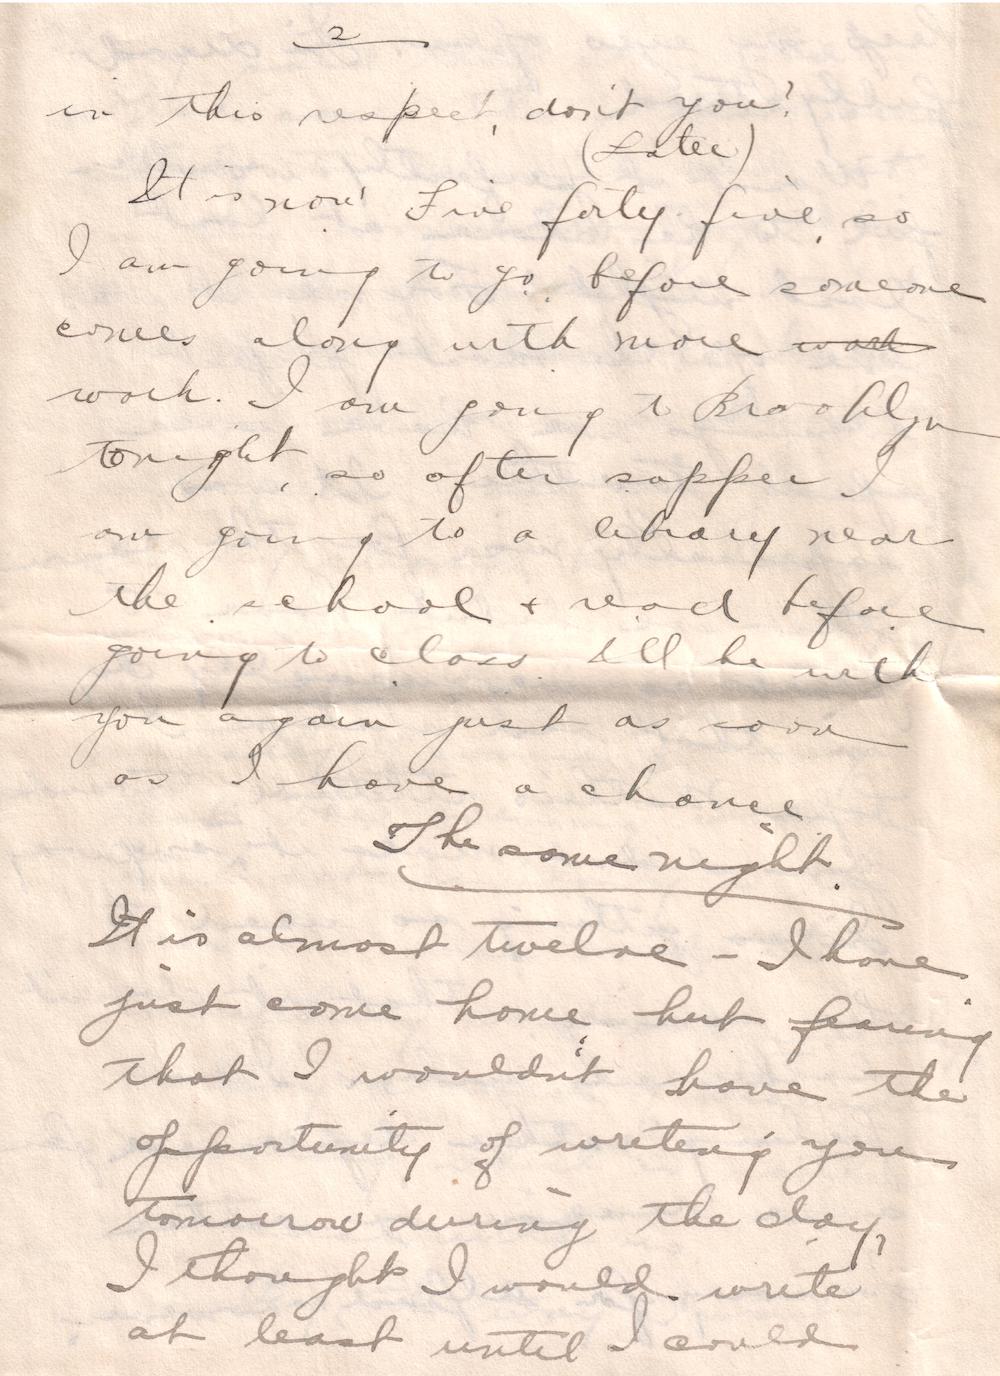 2
in this respect, don't you?
(Later)
It is now Five forty five, so
I am going to go before someone
comes along with more work
work. I am going to Brooklyn
tonight, so after supper I
am going to a library near
the school + read before
going to class. I'll be with
you again just as soon
as I have a chance
The same night.
It is almost twelve - I have
just come home but fearing
that I wouldn't have the
opportunity of writing you
tomorrow during the day,
I thought I would write
at least until I could